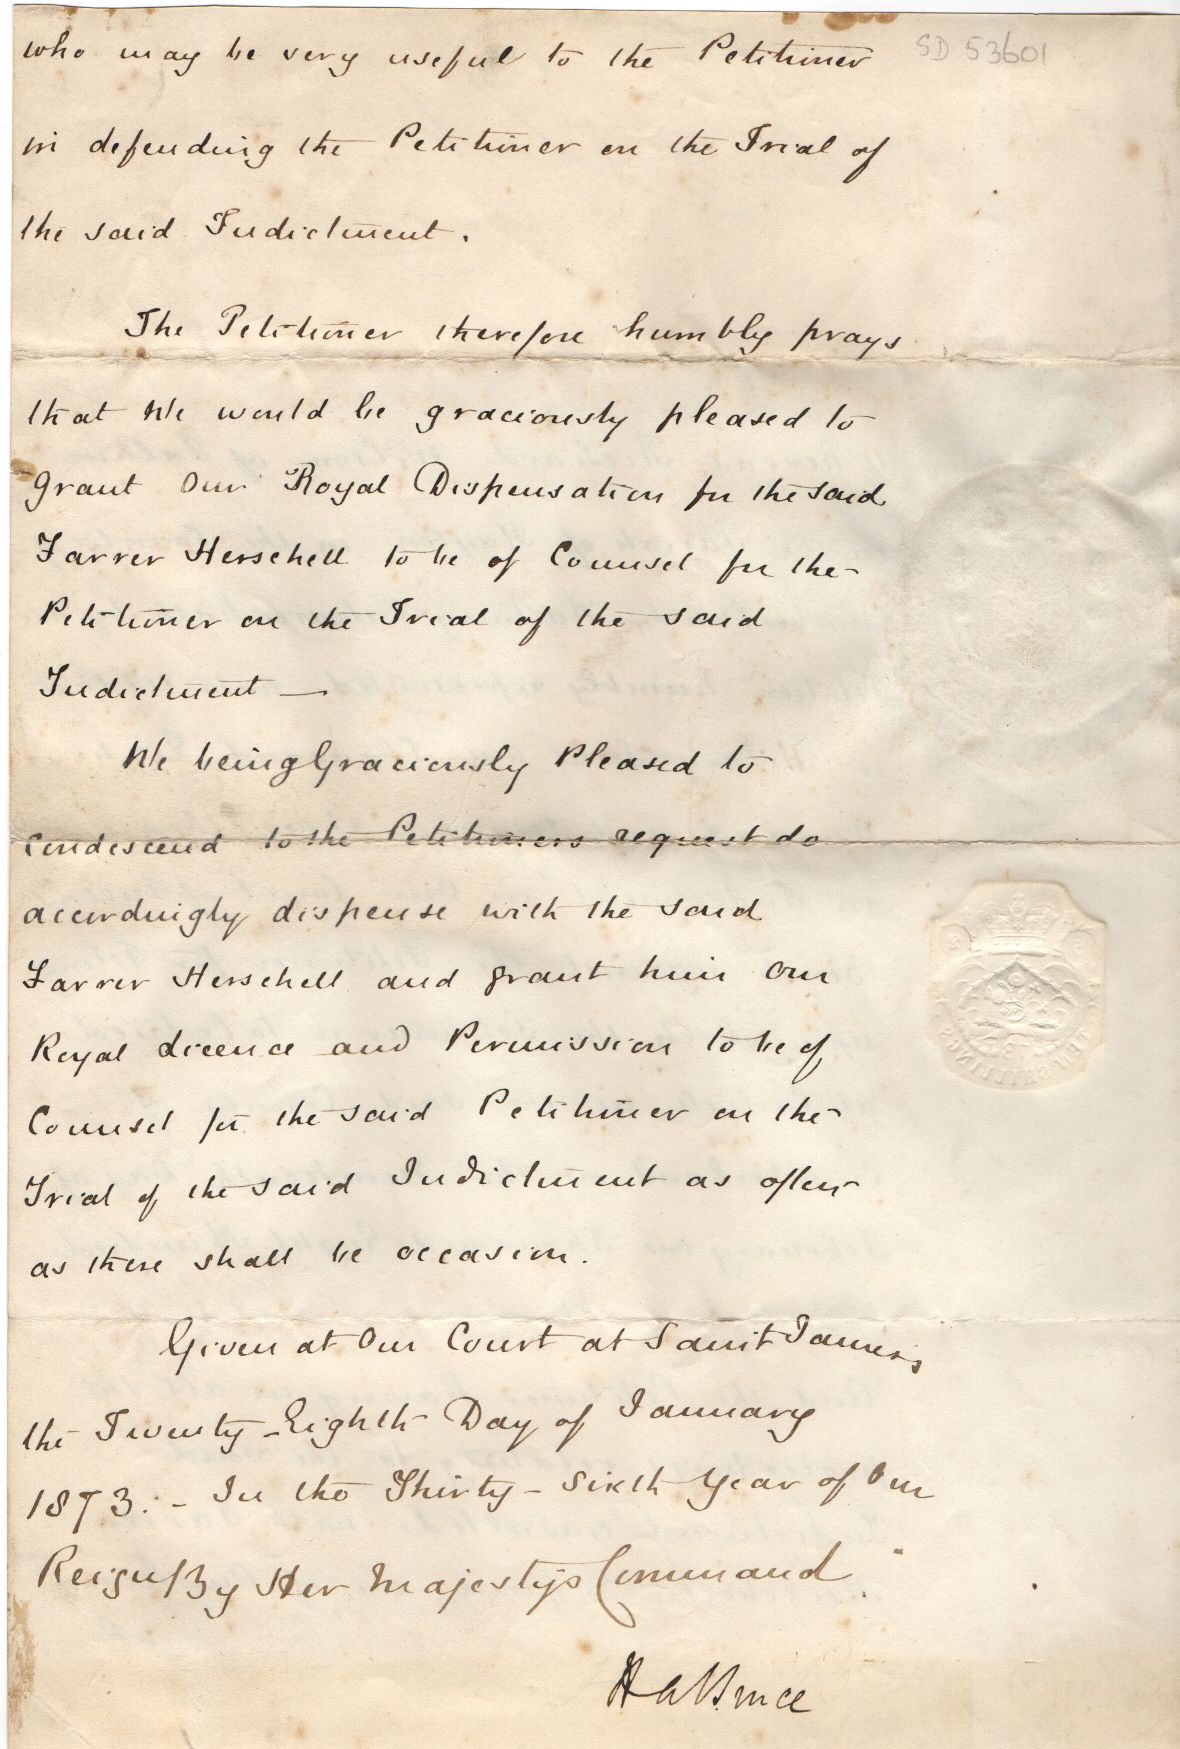 SD 53601
who may be very useful to the Petitioner
in defending the Petitioner on the Trial of
the said Indictment.
The Petitioner therefore humbly prays
that We would be graciously pleased to
grant Our Royal Dispensation for the said
Farrer Herschell to be of Counsel for the
Petitioner on the Trial of the said
Indictment —
We being Graciously Pleased to
Condescend to the Petitioners request do
accordingly dispense with the said
Farrer Herschell and grant him Our
Royal Licence and Permission to be of
Counsel for the said Petitioner on the
Trial of the said Indictment as often
as there shall be occasion.
Given at Our Court at Saint James's
the Twenty-Eighth Day of January
1873. - In the Thirty-Sixth Year of Our
Reign / By Her Majesty's Command.
H A Bruce